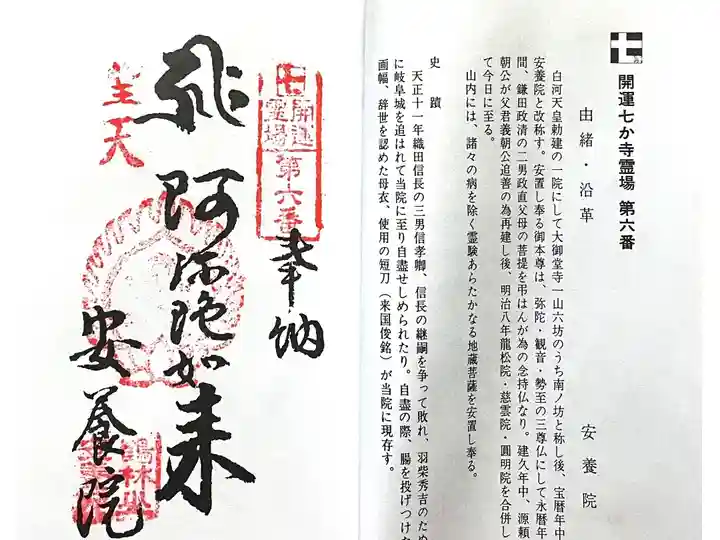 七
開運七か寺霊場 第六番
由緒・沿革
安養院
白河天皇勅建の一院にして大御堂寺一山六坊のうち南ノ坊と称し後、宝暦年中
安養院と改称す。安置し奉る御本尊は、弥陀・観音・勢至の三尊仏にして永暦年
間、鎌田政清の二男政直父母の菩提を弔はんが為の念持仏なり。建久年中、源頼
朝公が父君義朝公追善の為再建し後、明治八年龍松院・慈雲院・圓明院を合併し
て今日に至る。
山内には、諸々の病を除く霊験あらたかなる地蔵菩薩を安置し奉る。
史蹟
天正十一年織田信長の三男信孝卿、信長の継嗣を争って敗れ、羽柴秀吉のため
に岐阜城を追はれて当院に至り自盡せしめられたり。自盡の際、腸を投げつけた
画幅、辞世を認めた母衣、使用の短刀（来国俊銘）が当院に現存す。
奉納
七
開運
霊場
第六番
阿弥陀如来
安養院